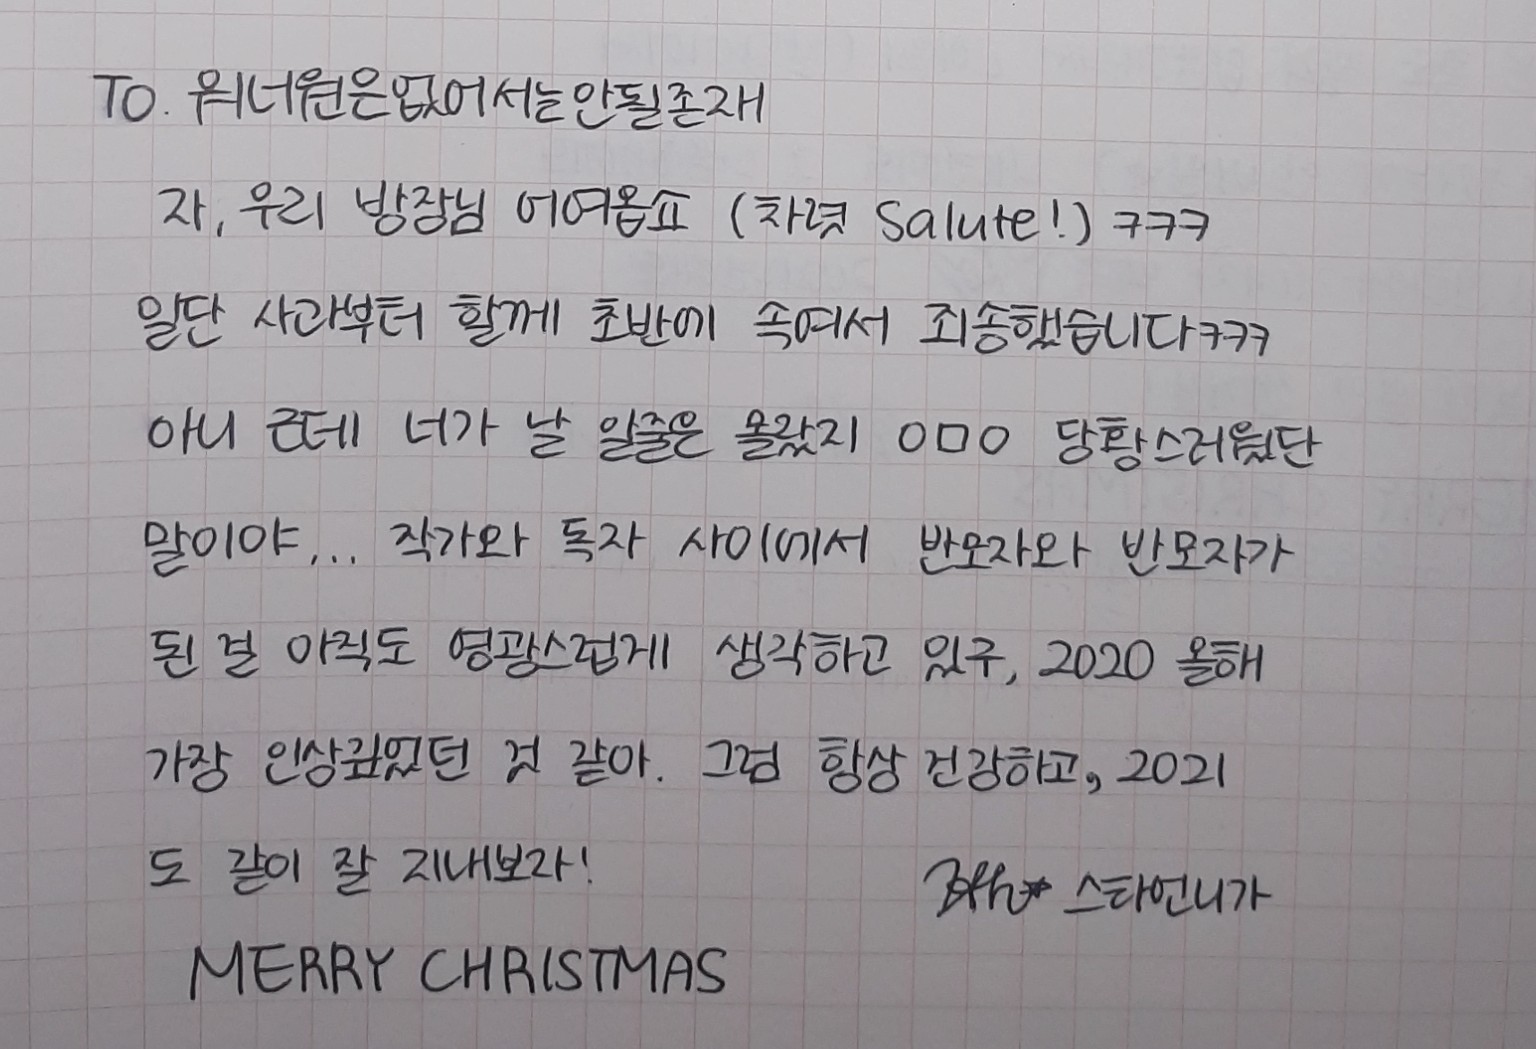 TO. 워너원은없어서는안될존재
자, 우리 방장님 어여옵쇼 (차렷 Salute!) ㅋㅋㅋ
일단 사과부터 할께 초반에 속여서 죄송했습니다ㅋㅋㅋ
아니 근데 너가 날 알줄은 몰랐지 ㅇㅁㅇ 당황스러웠단
말이야... 작가와 독자 사이에서 반모자와 반모자가
된 걸 아직도 영광스럽게 생각하고 있구, 2020 올해
가장 인상깊었던 것 같아. 그럼 항상 건강하고, 2021
도 같이 잘 지내보자!
스타언니가
MERRY CHRISTMAS